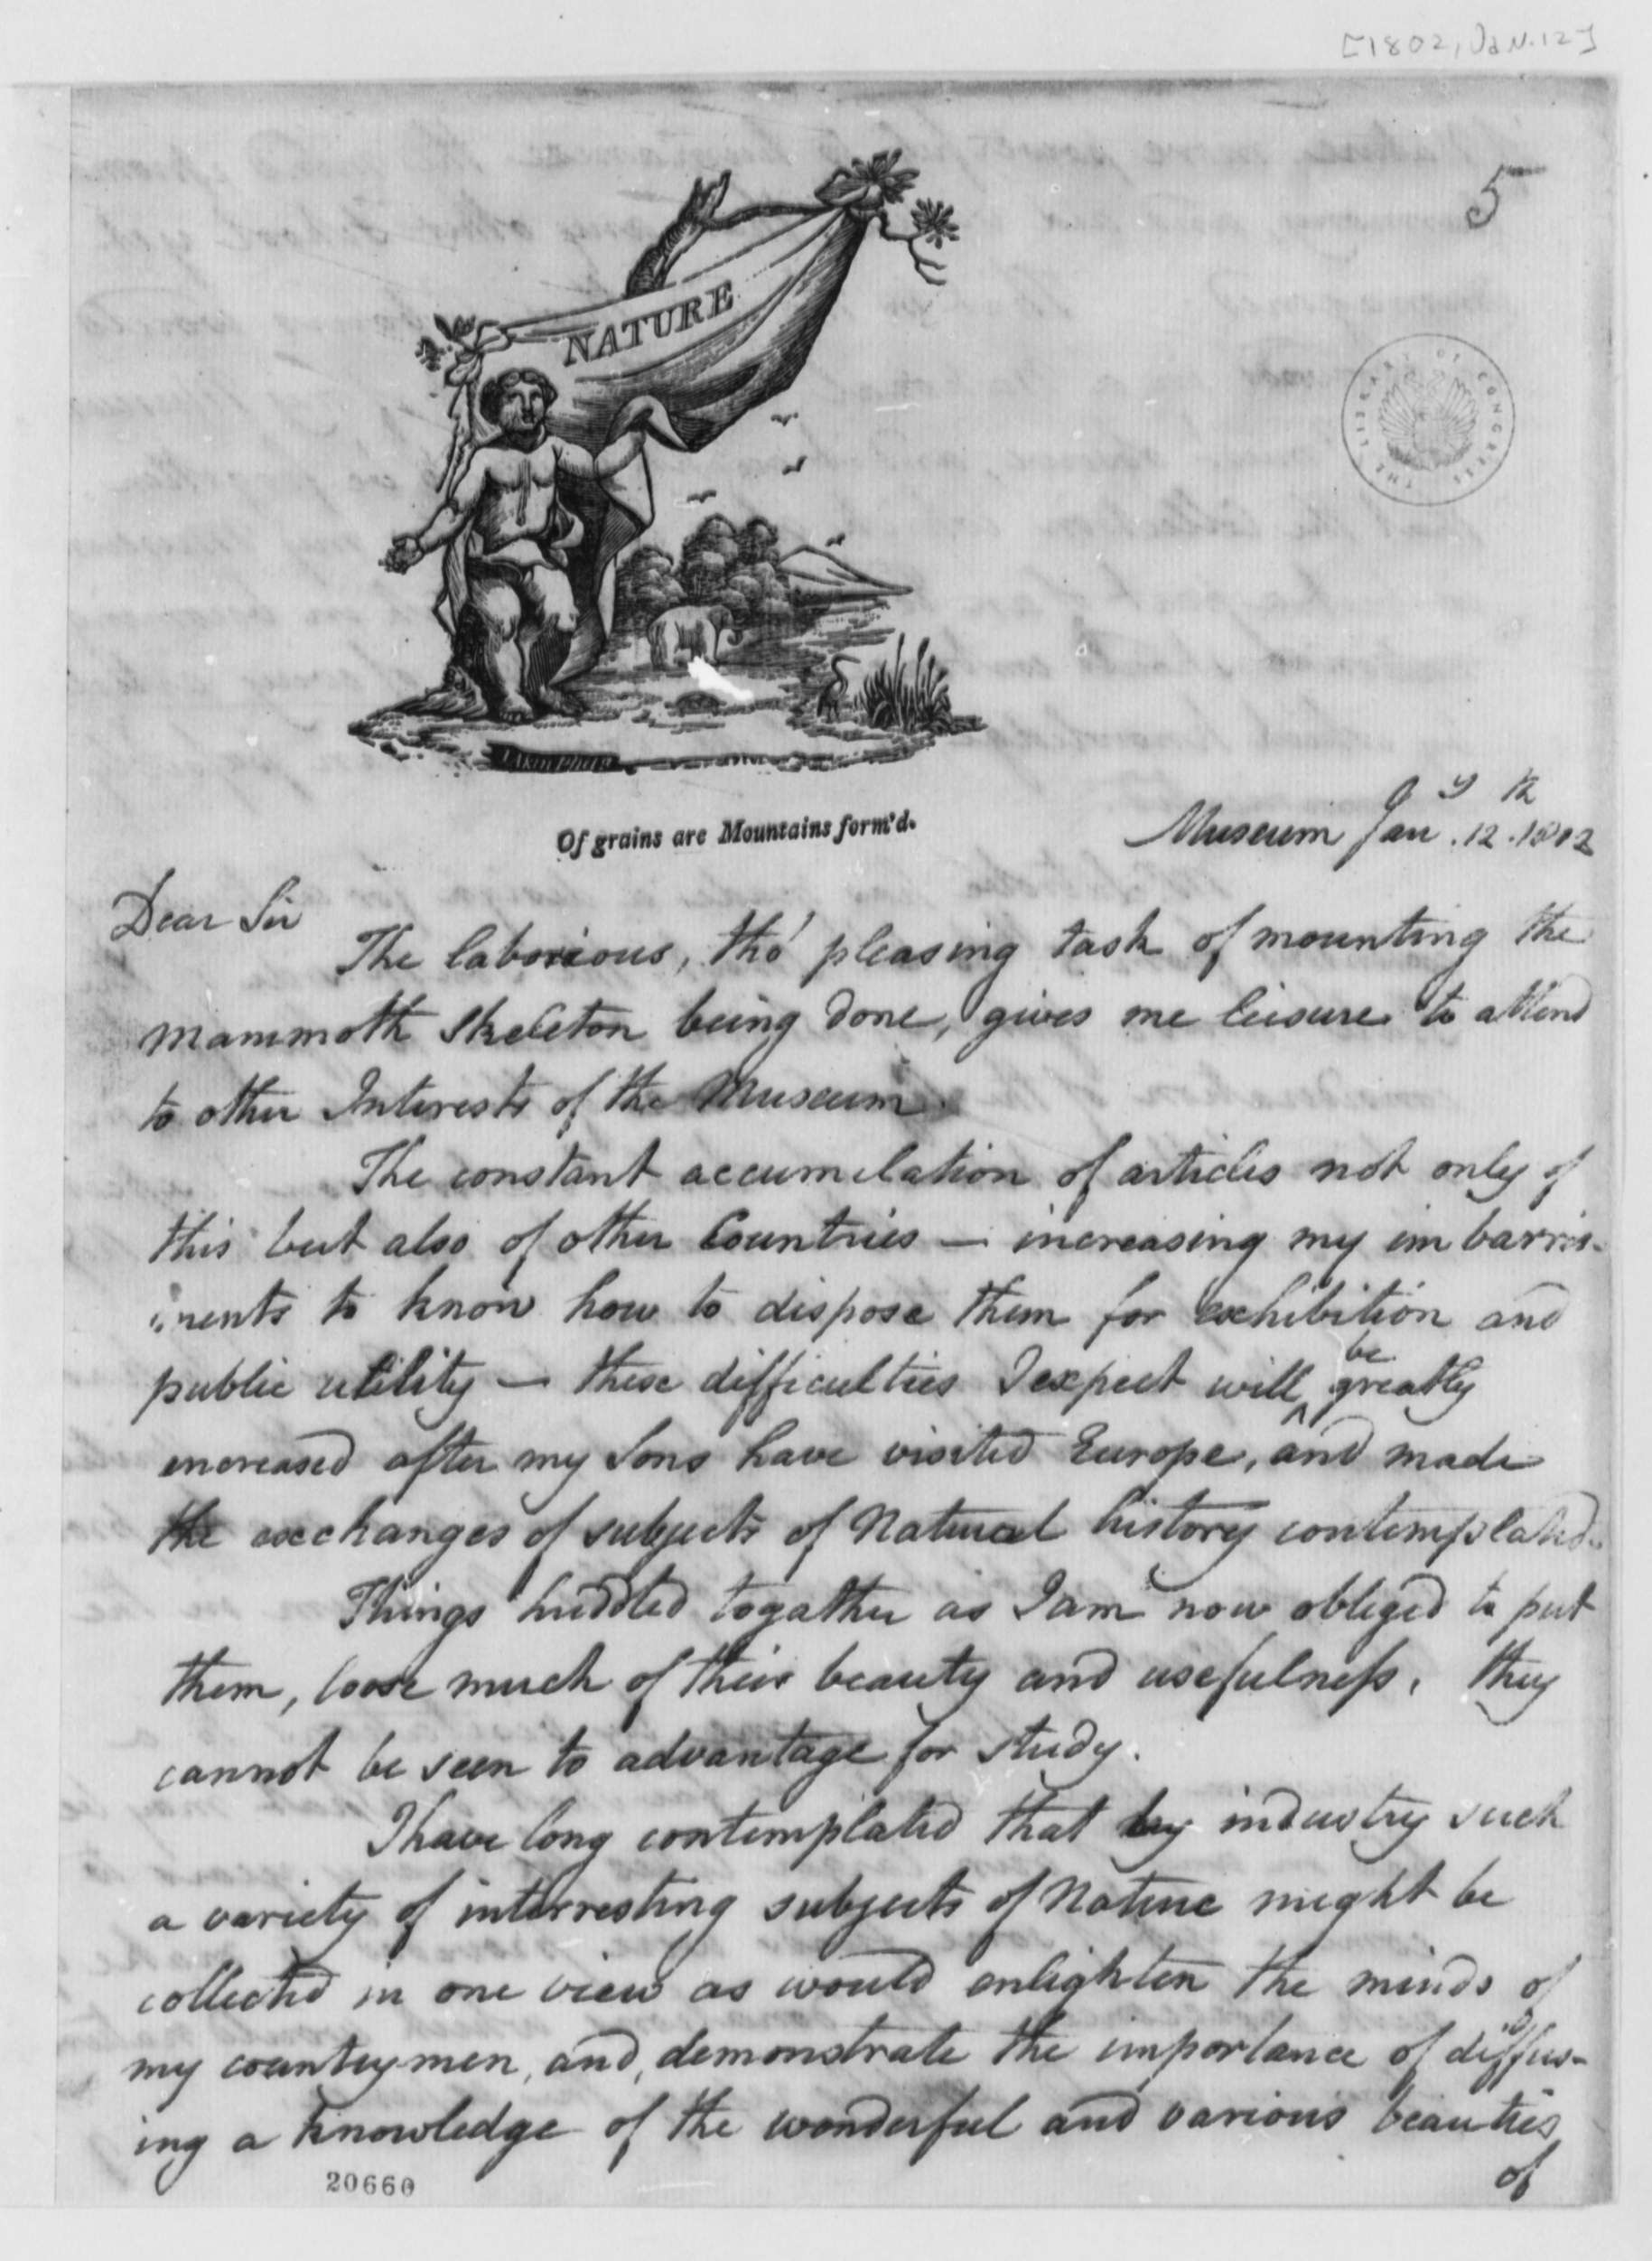 [1802, Jan. 12]
5
NATURE
THE LIBRARY OF CONGRESS
Of grains are Mountains form'd.
Museum Jany. 12th. 1802
Dear Sir
The laborious, tho' pleasing task of mounting the
mammoth Skeleton being done, gives me leisure to attend
to other Interests of the Museum.
The constant accumelation of articles not only of
this but also of other Countries — increasing my imbarris-
ments to know how to dispose them for exhibition and
public utility — these difficulties I expect will be greatly
encreased after my Sons have visited Europe, and made
the exchanges of subjects of Natural history contemplated.
Things huddled togather as I am now obliged to put
them, loose much of their beauty and usefulness. they
cannot be seen to advantage for study.
I have long contemplated that by industry such
a variety of interresting subjects of Nature might be
collected in one view as would enlighten the minds of
my countrymen, and, demonstrate the importance of diffus-
ing a knowledge of the wonderful and various beauties
of
20660